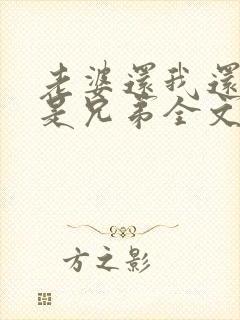 老婆還我還
是兄弟全文
方之影